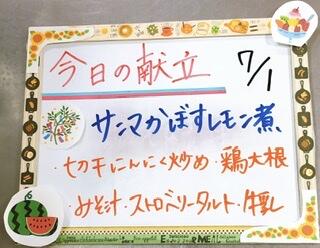 今日の献立 7/1
サンマかぼすレモン煮
・切干にんにく炒め・鶏大根
・みそ汁・ストロベリータルト・牛乳